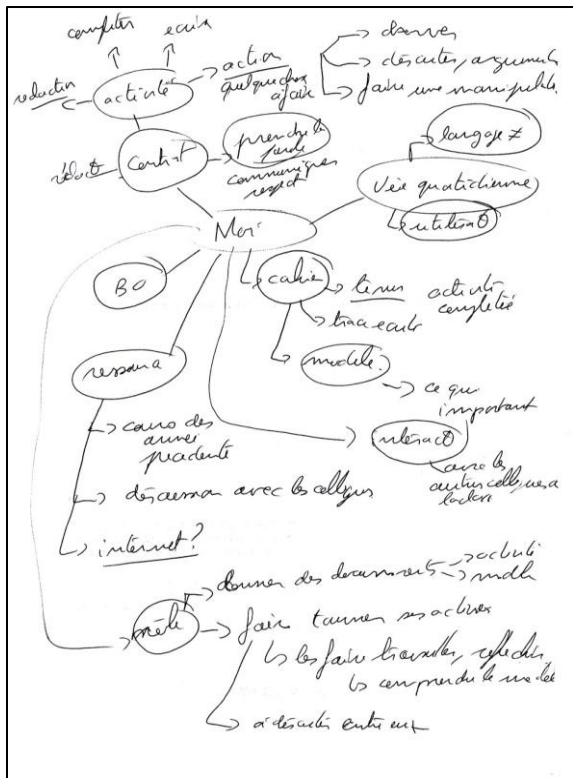 compléter
écrire
rédaction
activité
action
quelque chose
à faire
observer
discuter, argumenter
faire une manipulat.
langage ≠
contrat
rédact
prendre la
parole
communiquer
respect
Vie quotidienne
utilisat
Moi
BO
cahier
tenu
activité
complétée
trace écrite
modèle
ce qui
important
ressource
cours des
année
précédente
interact
avec les
autres collègues
discussion avec les collègues
internet ?
donner des documents
activité
modèle
faire tourner ses activités
les faire travailler, réfléchir,
comprendre le modèle
à discuter entre eux